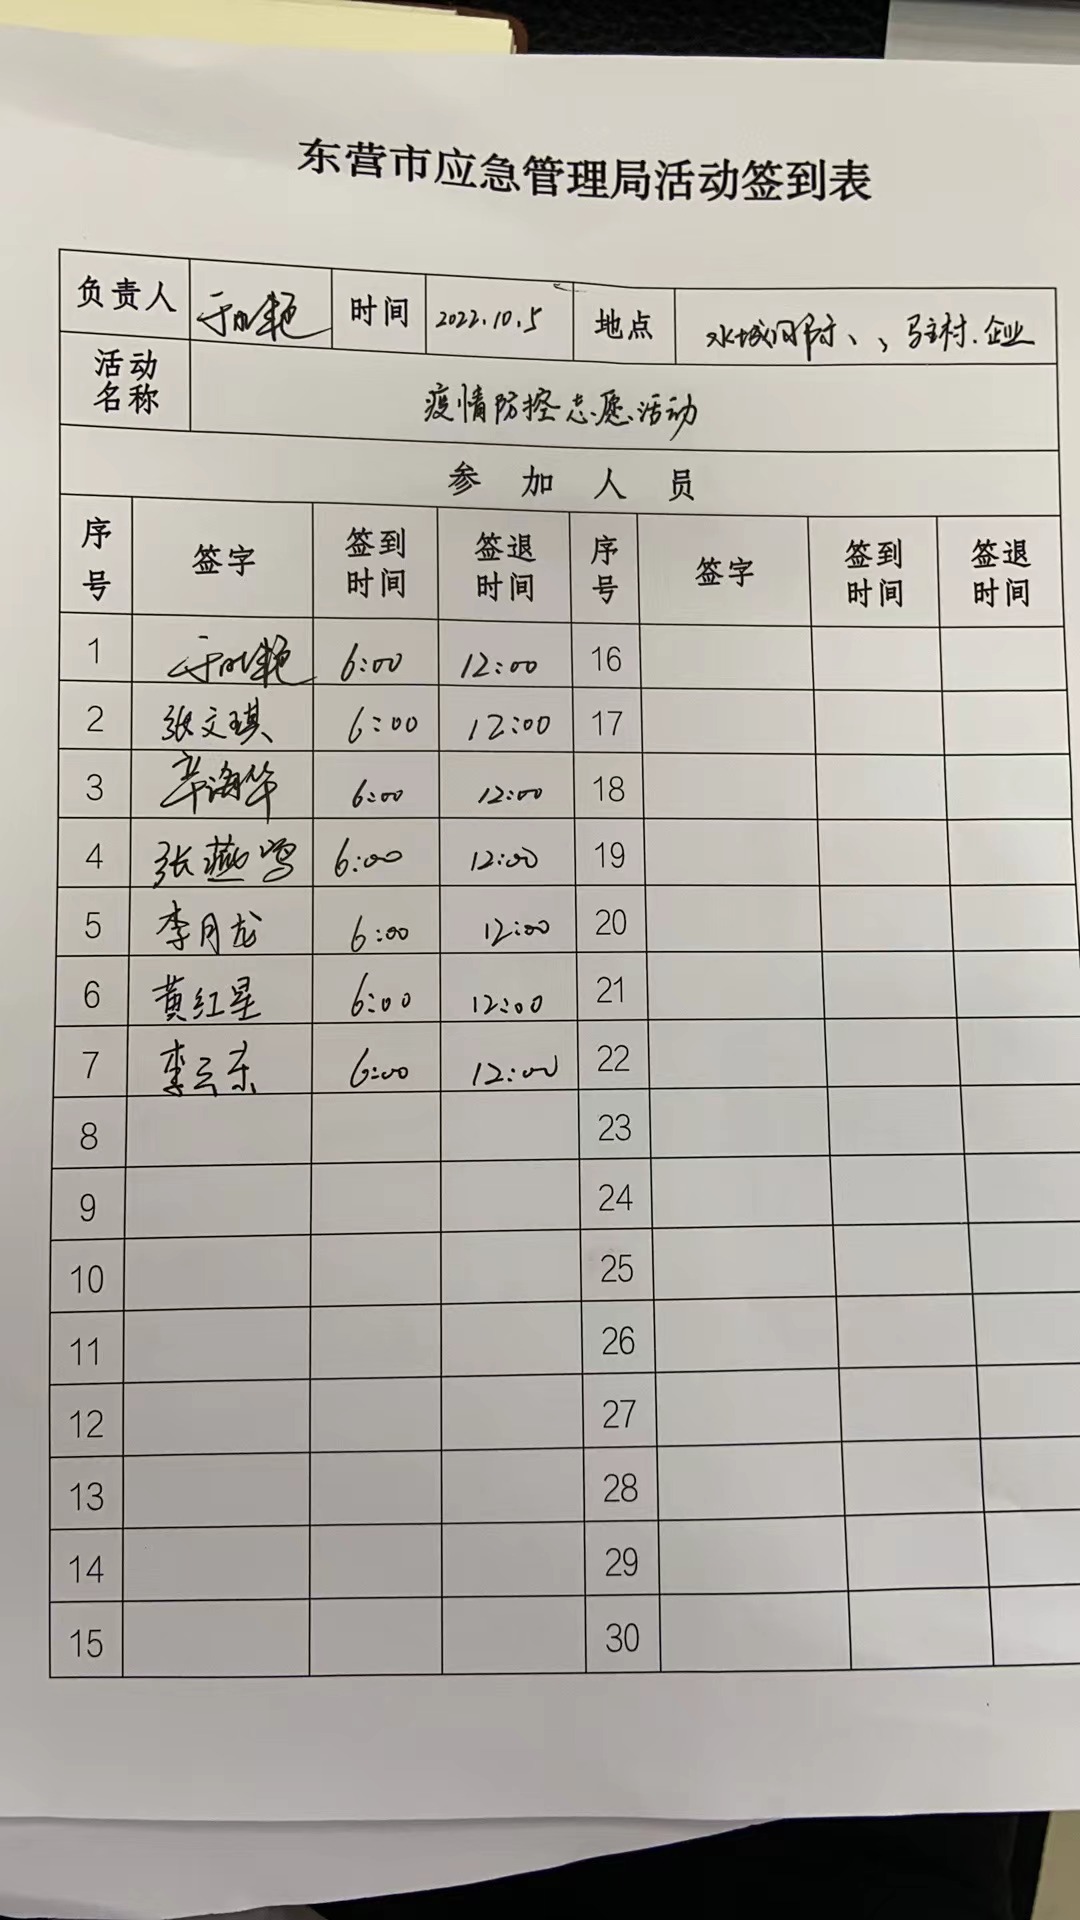 东营市应急管理局活动签到表
负责人 时间 2022.10.5 地点 水城 、、驻村.企业
活动名称 疫情防控志愿活动
参加人员
序号 签字 签到时间 签退时间 序号 签字 签到时间 签退时间
1 6:00 12:00 16
2 张文琪 6:00 12:00 17
3 6:00 12:00 18
4 张燕 6:00 12:00 19
5 李月龙 6:00 12:00 20
6 黄红星 6:00 12:00 21
7 李云东 6:00 12:00 22
8 23
9 24
10 25
11 26
12 27
13 28
14 29
15 30